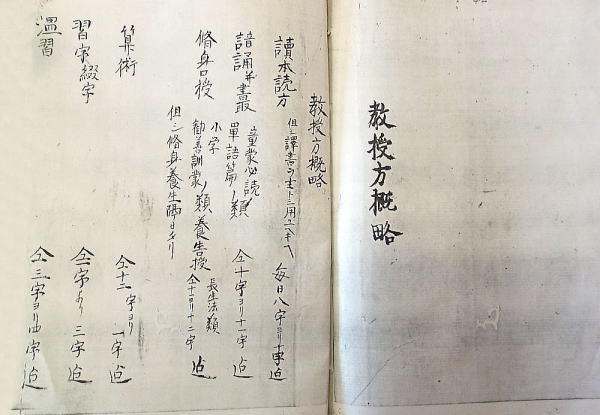 教授方概略
教授方概略
讀本読方 但シ譯書ヲ主トシ用ユヘキヿ 毎日八字ヨリ十字迠
諳誦并書取 童蒙必読 單語篇ノ類 仝十字ヨリ十一字迠
脩身口授 小学 勧善訓蒙ノ類 養生口授 長生法類 仝十一字ヨリ十二字迠
但シ脩身養生隔日ナリ
算術 仝十二字ヨリ一字迠
習字綴字 仝一字ヨリ三字迠
温習 仝三字ヨリ四字迠